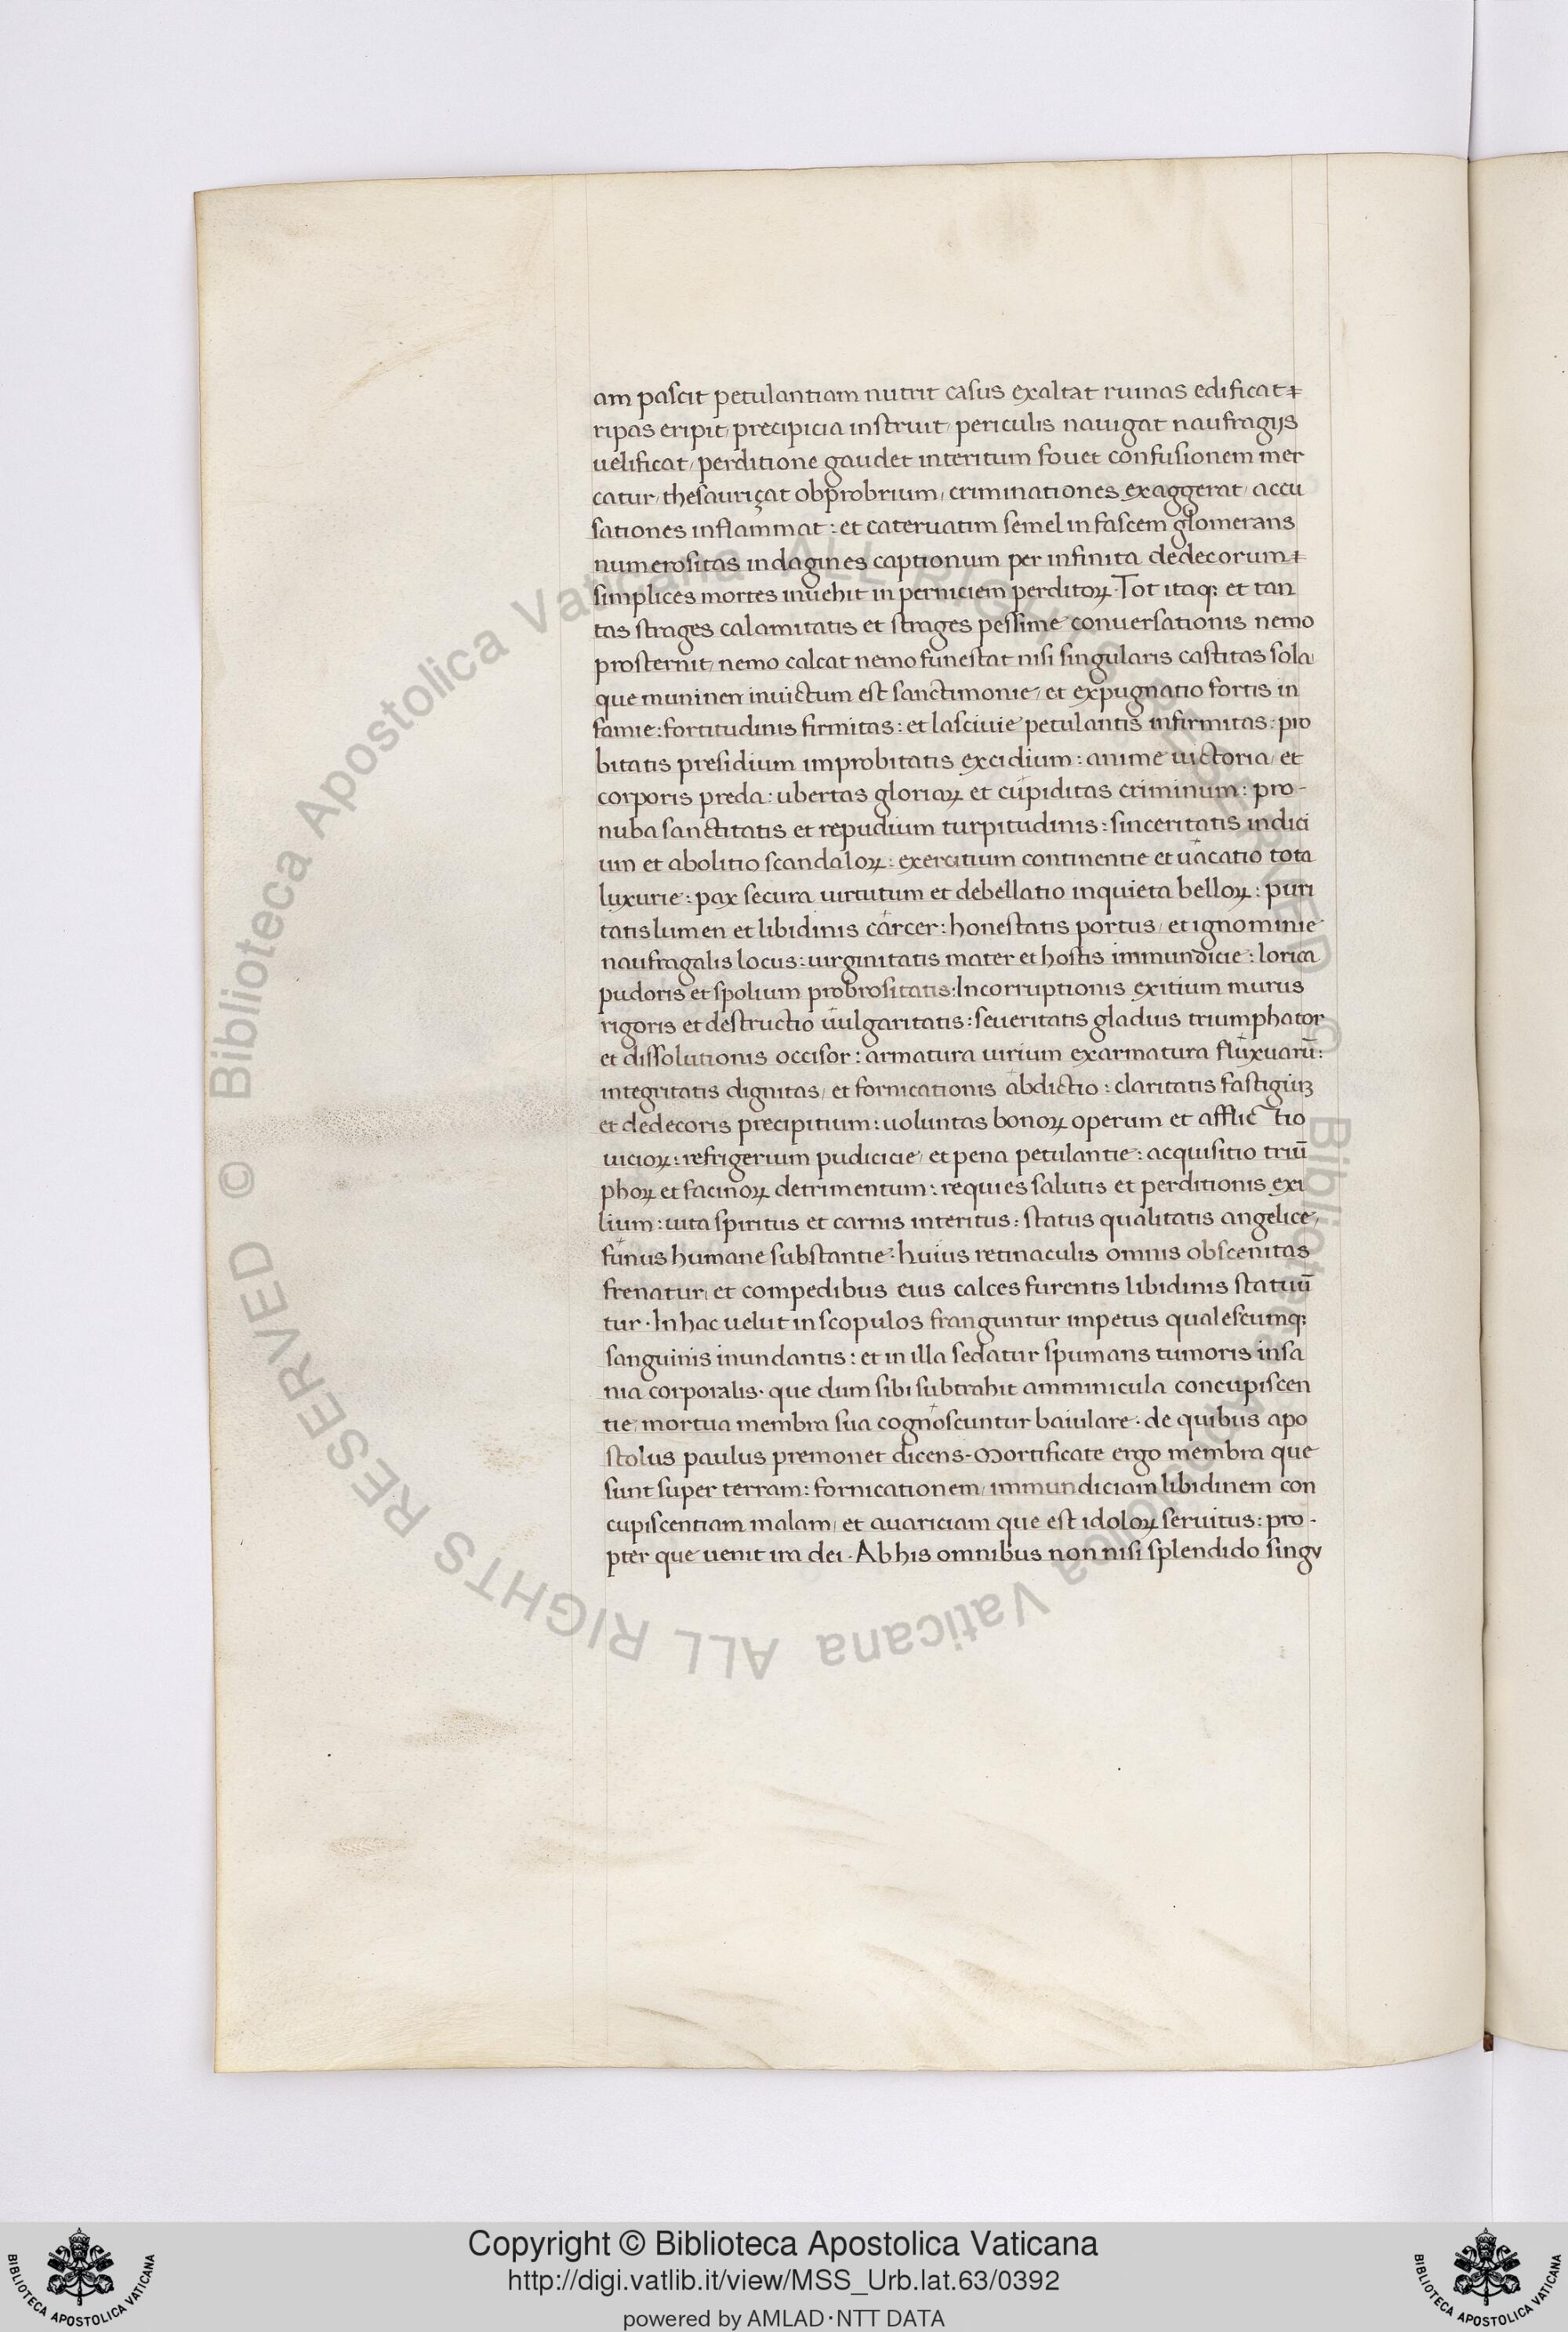 am pascit petulantiam nutrit casus exaltat ruinas edificat
ripas eripit, precipicia instruit, periculis nauigat naufragijs
uelificat, perditione gaudet interitum fouet confusionem mer
catur, thesauriçat obprobrium, criminationes exaggerat, accu
sationes inflammat: et cateruatim semel in fascem glomerans
numerositas indagines captionum per infinita dedecorum
simplices mortes inuehit in perniciem perditoꝝ. Tot itaqꝫ et tan
tas strages calamitatis et strages pessime conuersationis nemo
prosternit, nemo calcat nemo funestat nisi singularis castitas sola
que muninen inuictum est sanctimonie, et expugnatio fortis in
famie: fortitudinis firmitas: et lasciuie petulantis infirmitas: pro
bitatis presidium improbitatis excidium: anime uictoria, et
corporis preda: ubertas gloriaꝝ et cupiditas criminum: pro-
nuba sanctitatis et repudium turpitudinis: sinceritatis indici
um et abolitio scandaloꝝ: exercitium continentie et uacatio tota
luxurie: pax secura uirtutum et debellatio inquieta belloꝝ: puri
tatis lumen et libidinis carcer: honestatis portus, et ignominie
naufragalis locus: uirginitatis mater et hostis immundicie: lorica
pudoris et spolium probrositatis: Incorruptionis exitium murus
rigoris et destructio uulgaritatis: seueritatis gladius triumphator
et dissolutionis occisor: armatura uirium exarmatura fluxuarū:
integritatis dignitas, et fornicationis abdictio: claritatis fastigiuꝫ
et dedecoris precipitium: uoluntas bonoꝝ operum et afflic tio
uicioꝝ: refrigerium pudicicie, et pena petulantie: acquisitio triū
phoꝝ et facinoꝝ detrimentum: requies salutis et perditionis exi
lium: uita spiritus et carnis interitus: status qualitatis angelice,
funus humane substantie. huius retinaculis omnis obscenitas
frenatur, et compedibus eius calces furentis libidinis statuū
tur. In hac uelut in scopulos franguntur impetus qualescumqꝫ
sanguinis inundantis: et in illa sedatur spumans tumoris insa
nia corporalis. que dum sibi subtrahit amminicula concupiscen
tie, mortua membra sua cognoscuntur baiulare. de quibus apo
stolus paulus premonet dicens. Mortificate ergo membra que
sunt super terram: fornicationem, immundiciam libidinem con
cupiscentiam malam, et auariciam que est idoloꝝ seruitus: pro-
pter que uenit ira dei. Ab his omnibus non nisi splendido singu
© Biblioteca Apostolica Vaticana ALL RIGHTS RESERVED © Biblioteca Apostolica Vaticana ALL RIGHTS RESERVED
Copyright © Biblioteca Apostolica Vaticana
http://digi.vatlib.it/view/MSS_Urb.lat.63/0392
powered by AMLAD·NTT DATA
BIBLIOTECA APOSTOLICA VATICANA
BIBLIOTECA APOSTOLICA VATICANA